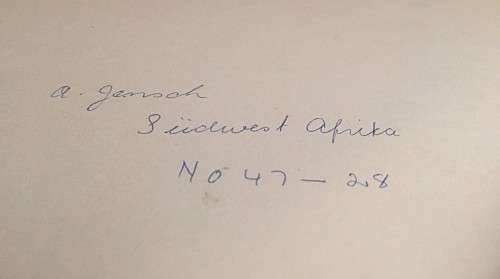 A. Jensch
Südwest Afrika
No 47 - 28